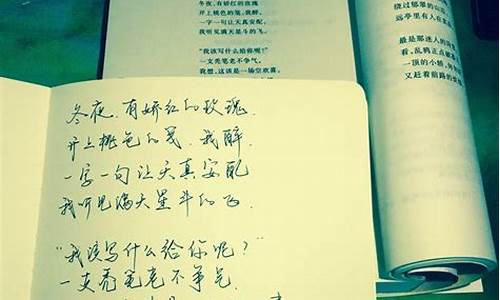 冬夜，有娇红的玫瑰
开上桃色的笺，我醉，
一字一句让天真安配，
我听见满天星斗的飞。
“我该写什么给你呢？”
一支秃笔老不争气。
我想，这该是一场空欢喜。
绕过郁翠的山
远亭里有人在
最是那迷人的
看，乱鸦正点
一顶的小轿，
又赶着前路的
冬夜，有娇红的玫瑰，
开上桃色的笺，我醉，
一字一句让天真安配
我听见满天星斗的飞，
“我该写什么给你呢？”
一支秃笔老不争气，